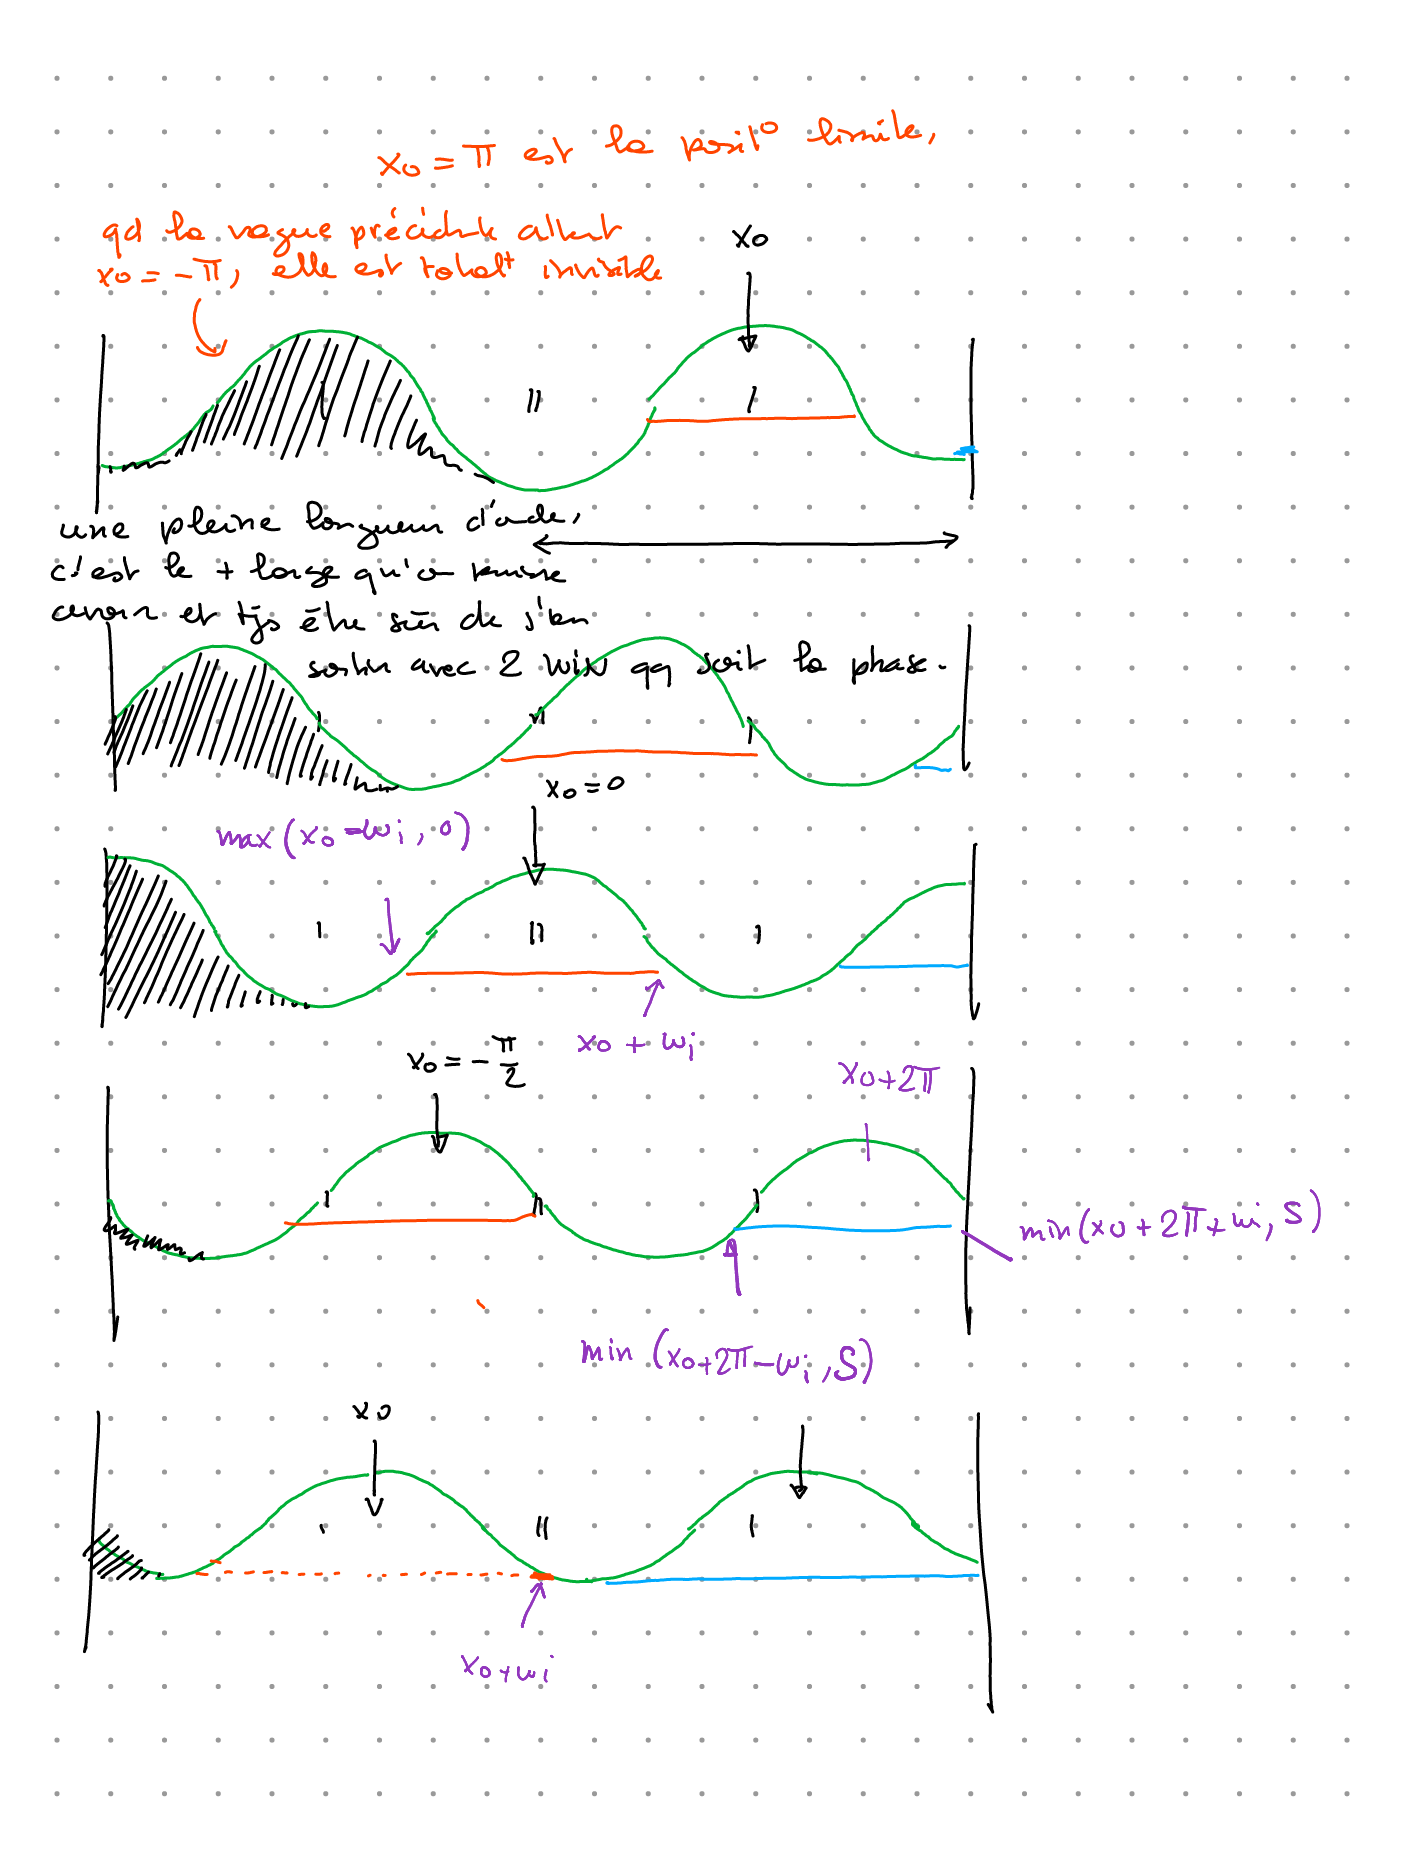 x₀ = π est la posit° limite,
qd la vague précédente atteint
x₀ = -π, elle est total^t invisible
x₀
une pleine longueur d'onde,
c'est le + large qu'on puisse
avoir et tjs être sûr de s'en
sortir avec 2 WIN qq soit la phase.
x₀ = 0
max(x₀ - wi, 0)
x₀ + wi
x₀ = -π/2
x₀+2π
min(x₀+2π+wi, S)
min(x₀+2π-wi, S)
x₀
x₀+wi